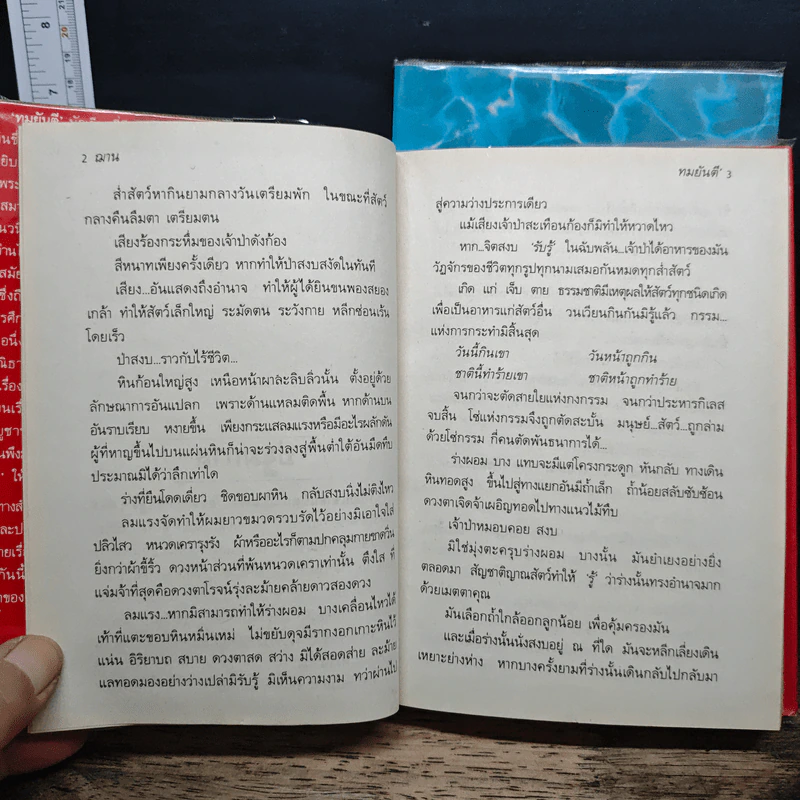 2 ฌาน
ส่ำสัตว์หากินยามกลางวันเตรียมพัก ในขณะที่สัตว์
กลางคืนลืมตา เตรียมตน
เสียงร้องกระหึ่มของเจ้าป่าดังก้อง
สีหนาทเพียงครั้งเดียว หากทำให้ป่าสงบสงัดในทันที
เสียง...อันแสดงถึงอำนาจ ทำให้ผู้ได้ยินขนพองสยอง
เกล้า ทำให้สัตว์เล็กใหญ่ ระมัดตน ระวังกาย หลีกซ่อนเร้น
โดยเร็ว
ป่าสงบ...ราวกับไร้ชีวิต...
หินก้อนใหญ่สูง เหนือหน้าผาละลิบลิ่วนั้น ตั้งอยู่ด้วย
ลักษณาการอันแปลก เพราะด้านแหลมติดพื้น หากด้านบน
อันราบเรียบ หงายขึ้น เพียงกระแสลมแรงหรือมีอะไรผลักดัน
ผู้ที่หาญขึ้นไปบนแผ่นหินก็น่าจะร่วงลงสู่พื้นต่ำใต้อันมืดทึบ
ประมาณมิได้ว่าลึกเท่าใด
ร่างที่ยืนโดดเดี่ยว ชิดขอบผาหิน กลับสงบนิ่งไม่ติงไหว
ลมแรงจัดทำให้ผมยาวขมวดรวบรัดไว้อย่างมิเอาใจใส่
ปลิวไสว หนวดเครารุงรัง ผ้าหรืออะไรก็ตามปกคลุมกายขาดวิ่น
ยิ่งกว่าผ้าขี้ริ้ว ดวงหน้าส่วนที่พ้นหนวดเคราเท่านั้น ตึงใส ที่
แจ่มจ้าที่สุดคือดวงตาโรจน์รุ่งละม้ายคล้ายดาวสองดวง
ลมแรง...หากมิสามารถทำให้ร่างผอม บางเคลื่อนไหวได้
เท้าที่แตะขอบหินหมิ่นเหม่ ไม่ขยับดุจมีรากงอกเกาะหินไว้
แน่น อิริยาบถ สบาย ดวงตาสด สว่าง มิได้สอดส่าย ละม้าย
แลทอดมองอย่างว่างเปล่ามิรับรู้ มิเห็นความงาม ทว่าผ่านไป
ทมยันตี 3
สู่ความว่างประการเดียว
แม้เสียงเจ้าป่าสะเทือนก้องก็มิทำให้หวาดไหว
หาก..จิตสงบ 'รับรู้' ในฉับพลัน..เจ้าป่าได้อาหารของมัน
วัฏจักรของชีวิตทุกรูปทุกนามเสมอกันหมดทุกส่ำสัตว์
เกิด แก่ เจ็บ ตาย ธรรมชาติมีเหตุผลให้สัตว์ทุกชนิดเกิด
เพื่อเป็นอาหารแก่สัตว์อื่น วนเวียนกินกันมิรู้แล้ว กรรม...
แห่งการกระทำมิสิ้นสุด
วันนี้กินเขา วันหน้าถูกกิน
ชาตินี้ทำร้ายเขา ชาติหน้าถูกทำร้าย
จนกว่าจะตัดสายใยแห่งกงกรรม จนกว่าประหารกิเลส
จบสิ้น โซ่แห่งกรรมจึงถูกตัดสะบั้น มนุษย์...สัตว์...ถูกล่าม
ด้วยโซ่กรรม กี่คนตัดพันธนาการได้...
ร่างผอม บาง แทบจะมีแต่โครงกระดูก หันกลับ ทางเดิน
หินทอดสูง ขึ้นไปสู่ทางแยกอันมีถ้ำเล็ก ถ้ำน้อยสลับซับซ้อน
ดวงตาเจิดจ้าเผอิญทอดไปทางแนวไม้ทึบ
เจ้าป่าหมอบคอย สงบ
มิใช่มุ่งตะครุบร่างผอม บางนั้น มันยำเยงอย่างยิ่ง
ตลอดมา สัญชาติญาณสัตว์ทำให้ 'รู้' ว่าร่างนั้นทรงอำนาจมาก
ด้วยเมตตาคุณ
มันเลือกถ้ำใกล้ออกลูกน้อย เพื่อคุ้มครองมัน
และเมื่อร่างนั้นนั่งสงบอยู่ ณ ที่ใด มันจะหลีกเลี่ยงเดิน
เหยาะย่างห่าง หากบางครั้งยามที่ร่างนั้นเดินกลับไปกลับมา